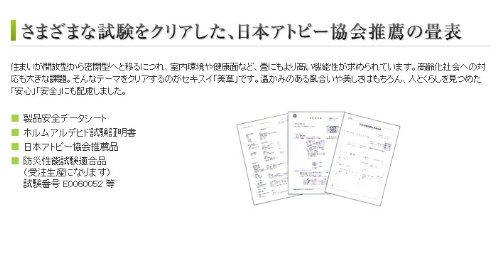 さまざまな試験をクリアした、日本アトピー協会推薦の畳表
住まいが開放型から密閉型へと移るにつれ、室内環境や健康面など、畳にもより高い機能性が求められています。高齢化社会への対
応も大きな課題。そんなテーマをクリアするのがセキスイ「美草」です。温かみのある風合いや美しさはもちろん、人とくらしを見つめた
「安心」「安全」にも配慮しました。
■ 製品安全データシート
■ ホルムアルデヒド試験証明書
■ 日本アトピー協会推薦品
■ 防災性能試験適合品
（受注生産になります）
試験番号 E0060052 等